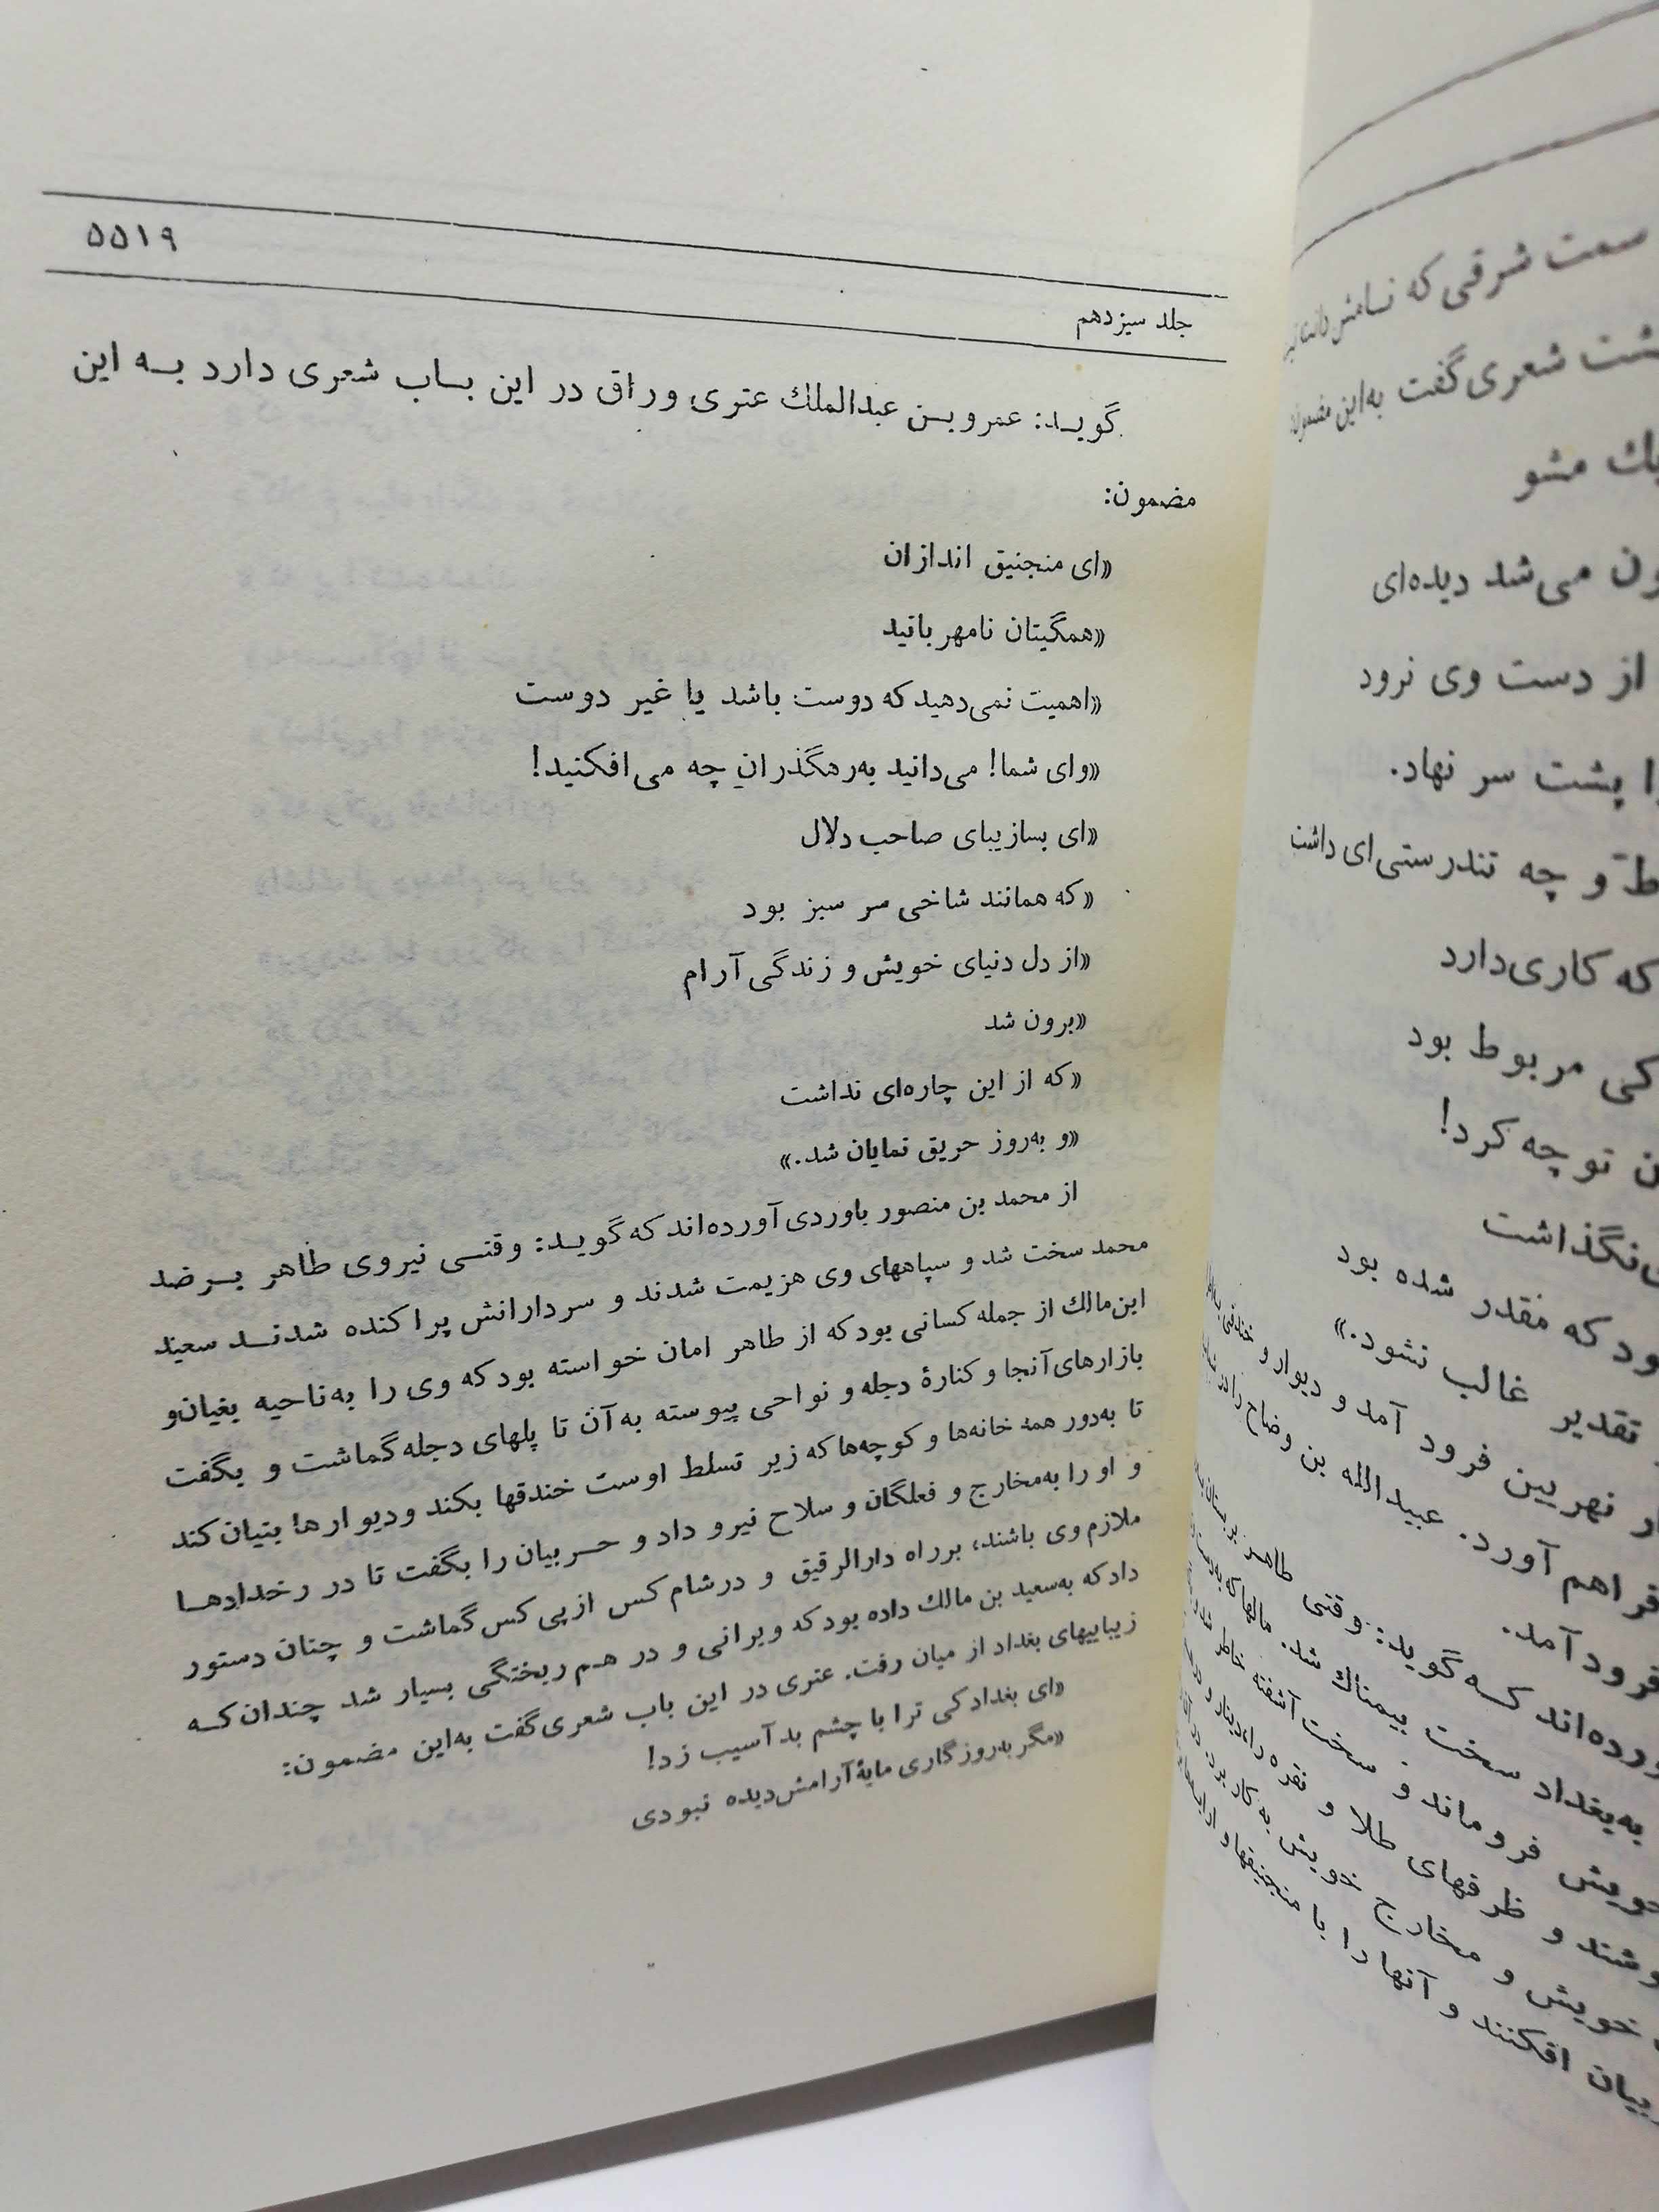 سمت شرقی که
شعری گفت به‌این
مشو
می‌شد دیده‌ای
از دست وی نرود
پشت سر نهاد.
و چه تندرستی‌ای داشت
که کاری‌دارد
مربوط بود
توجه کرد!
که مقدر شده بود
تقدیر غالب نشود.»
نهربین فرود آمد و دیوار و
فراهم آورد. عبیدالله بن وضاح را
فرود آمد.
گوید: وقتی طاهر
به‌بغداد سخت بیمناك شد. مالها که به‌دست
خویش فروماند و سخت آشفته خاطر شد
و ظرفهای طلا و نقره را
خویش و مخارج خویش به کار برد
افکنند و آنها را با منجنیقها و
۵۵۱۹
جلد سیزدهم
گویـد: عمروبـن عبدالملك عتری وراق در این بـاب شعری دارد بـه این
مضمون:
«ای منجنیق اندازان
«همگیتان نامهربانید
«اهمیت نمی‌دهید که دوست باشد یا غیر دوست
«وای شما! می‌دانید به‌رهگذران چه می‌افکنید!
«ای بسازیبای صاحب دلال
«که همانند شاخی سر سبز بود
«از دل دنیای خویش و زندگی آرام
«برون شد
«که از این چاره‌ای نداشت
«و به‌روز حریق نمایان شد.»
از محمد بن منصور باوردی آورده‌اند که گویـد: وقتـی نیروی طاهر بـرضد
محمد سخت شد و سپاههای وی هزیمت شدند و سردارانش پراکنده شدنـد سعید
ابن‌مالك از جمله کسانی بود که از طاهر امان خواسته بود که وی را به‌ناحیه بغیان‌و
بازارهای آنجا و کنارهٔ دجله و نواحی پیوسته به آن تا پلهای دجله گماشت و بگفت
تا به‌دور همه خانه‌ها و کوچه‌ها که زیر تسلط اوست خندقها بکند ودیوارها بنیان کند
و او را به‌مخارج و فعلگان و سلاح نیرو داد و حـربیان را بگفت تا در رخدادهـا
ملازم وی باشند، برراه دارالرقیق و درشام کس ازپی کس گماشت و چنان دستور
داد که به‌سعید بن مالك داده بود که ویرانی و در هم ریختگی بسیار شد چندان کـه
زیباییهای بغداد از میان رفت. عتری در این باب شعری گفت به‌این مضمون:
«ای بغداد کی ترا با چشم بد آسیب زد!
«مگر به‌روزگاری مایهٔ آرامش‌دیده نبودی